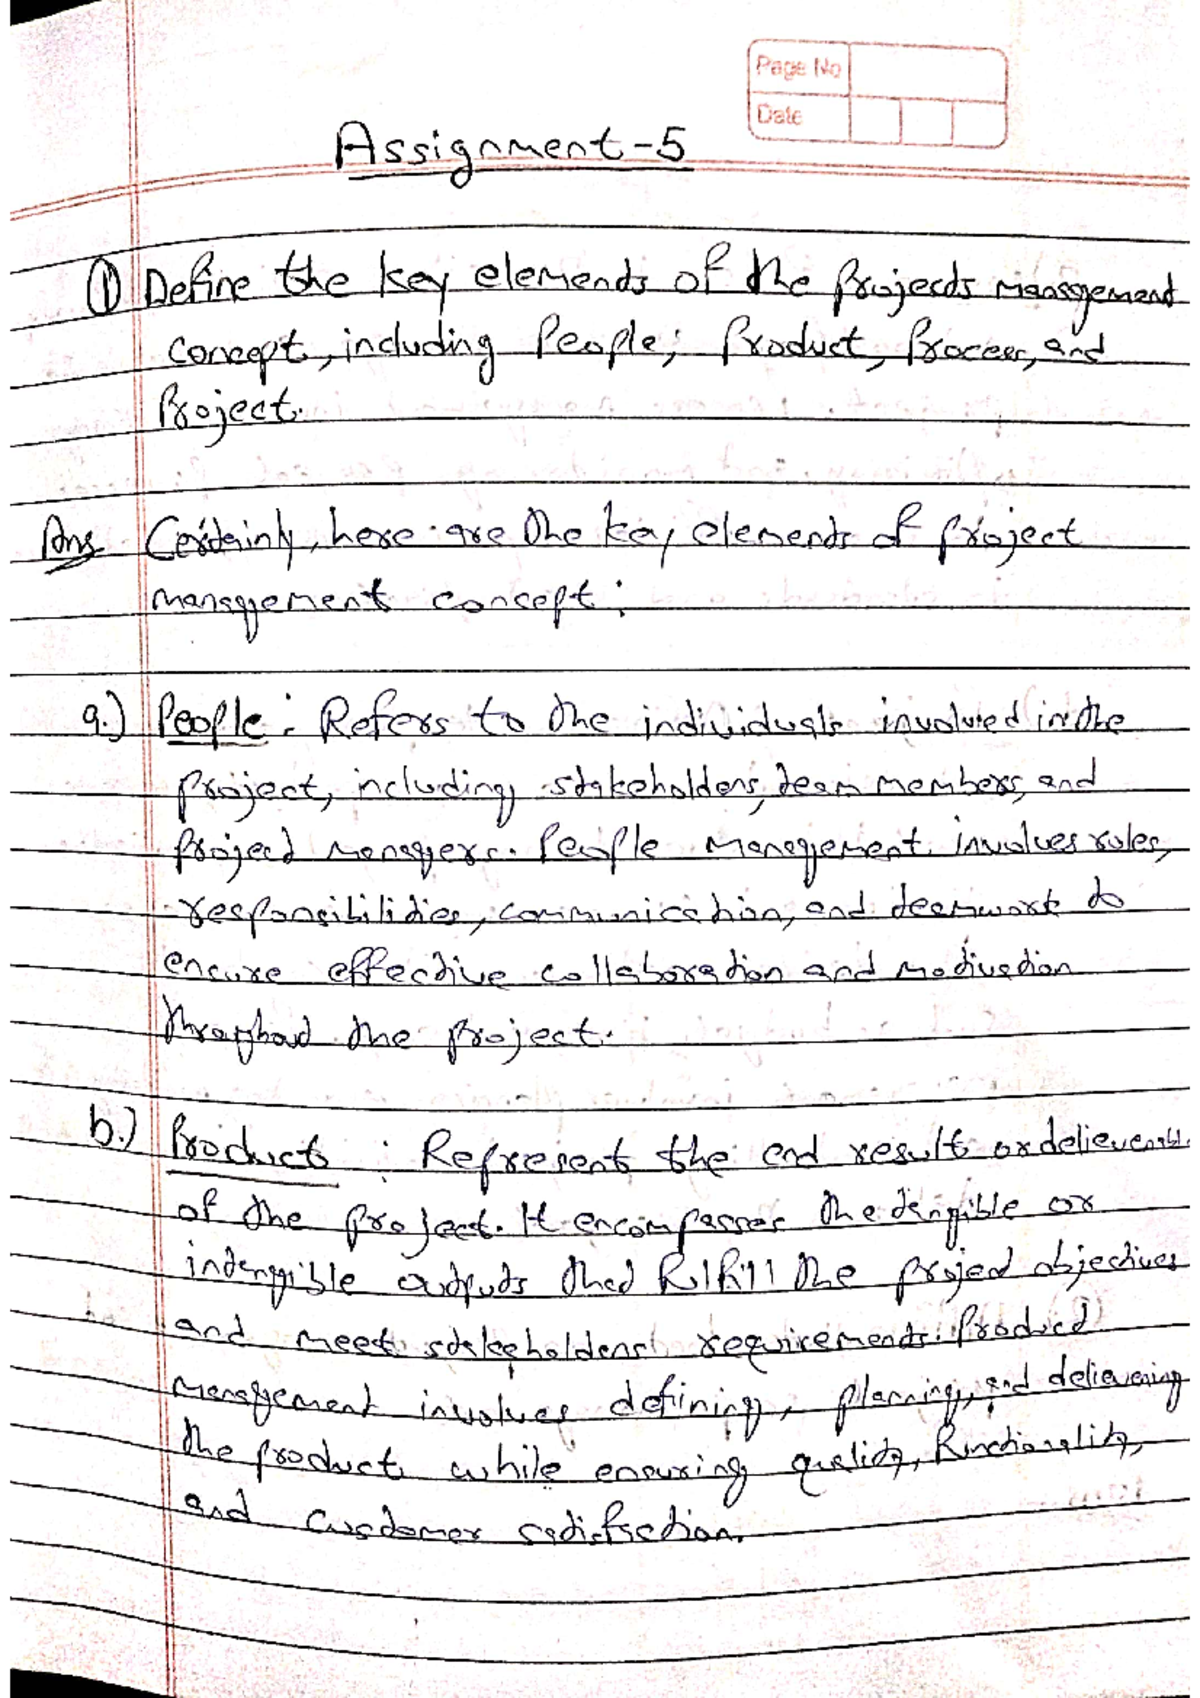 Page No
Date
Assignment-5
① Define the key elements of the projects management
concept, including People; Product, Process, and
Project.
Ans Certainly, here are the key elements of project
management concept:
a.) People: Refers to the individuals involved in the
project, including stakeholders, team members, and
project managers. People management involves roles,
responsibilities, communication, and teamwork to
ensure effective collaboration and motivation
throughout the project.
b.) Products : Represent the end result or delieverable
of the project. It encompasses the tangible or
intangible outputs that fulfill the project objectives
and meet stakeholders' requirements. Product
management involves defining, planning, and delievering
the product while ensuring quality, functionality,
and customer satisfaction.